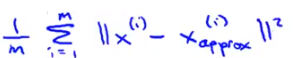 $\frac{1}{m} \sum_{i=1}^{m} \| x^{(i)} - x_{approx}^{(i)} \|^2$